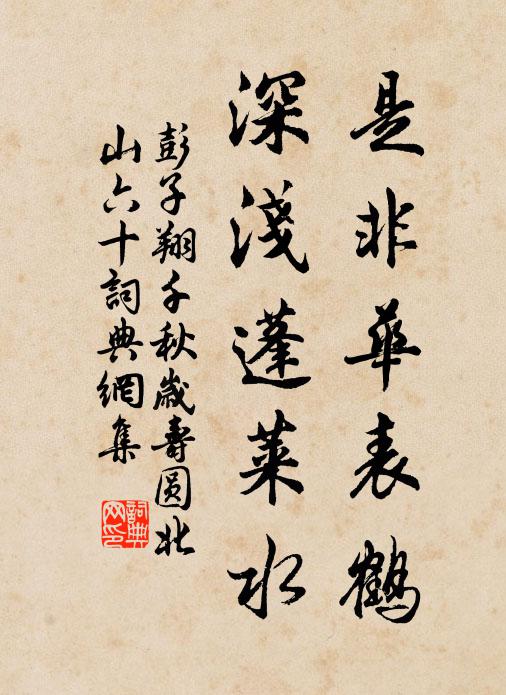 是非華表鶴
深淺蓬萊水
彭子翔千秋歲壽圆北
山六十詞典網集
詞典
网印